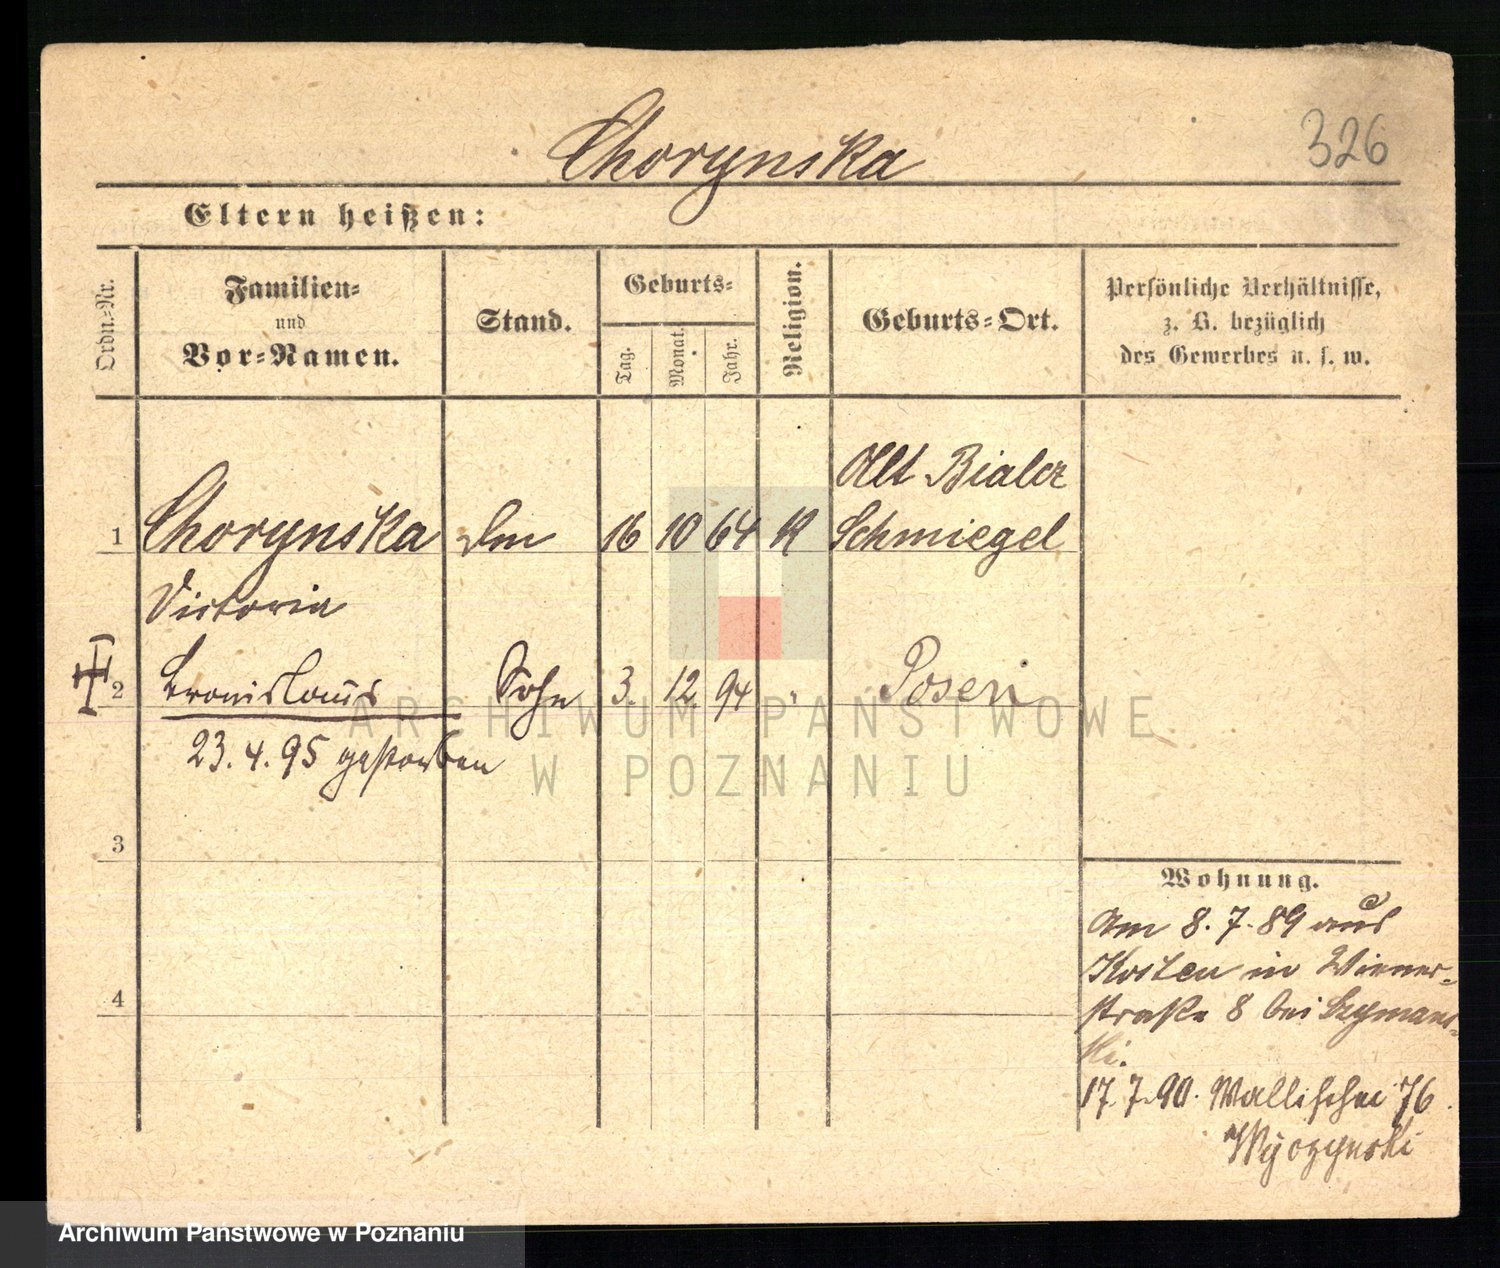 326
Chorynska
Eltern heißen:
Ordn.-Nr.
Familien-
und
Vor-Namen.
Stand.
Geburts-
Tag.
Monat.
Jahr.
Religion.
Geburts-Ort.
Persönliche Verhältnisse,
z. B. bezüglich
des Gewerbes u. s. w.
Alt Bialcz
1 Chorynska 16 10 64 K Schmiegel
Victoria
2 Bronislaus Sohn 3. 12. 94 " Posen
23. 4. 95 gestorben
3
4
Wohnung.
Am 8. 7. 89 aus
Kosten in Wiener-
straße 8 bei Szymans-
ki.
17. 7. 90. Wallischei 76
ARCHIWUM PAŃSTWOWE
W POZNANIU
Archiwum Państwowe w Poznaniu